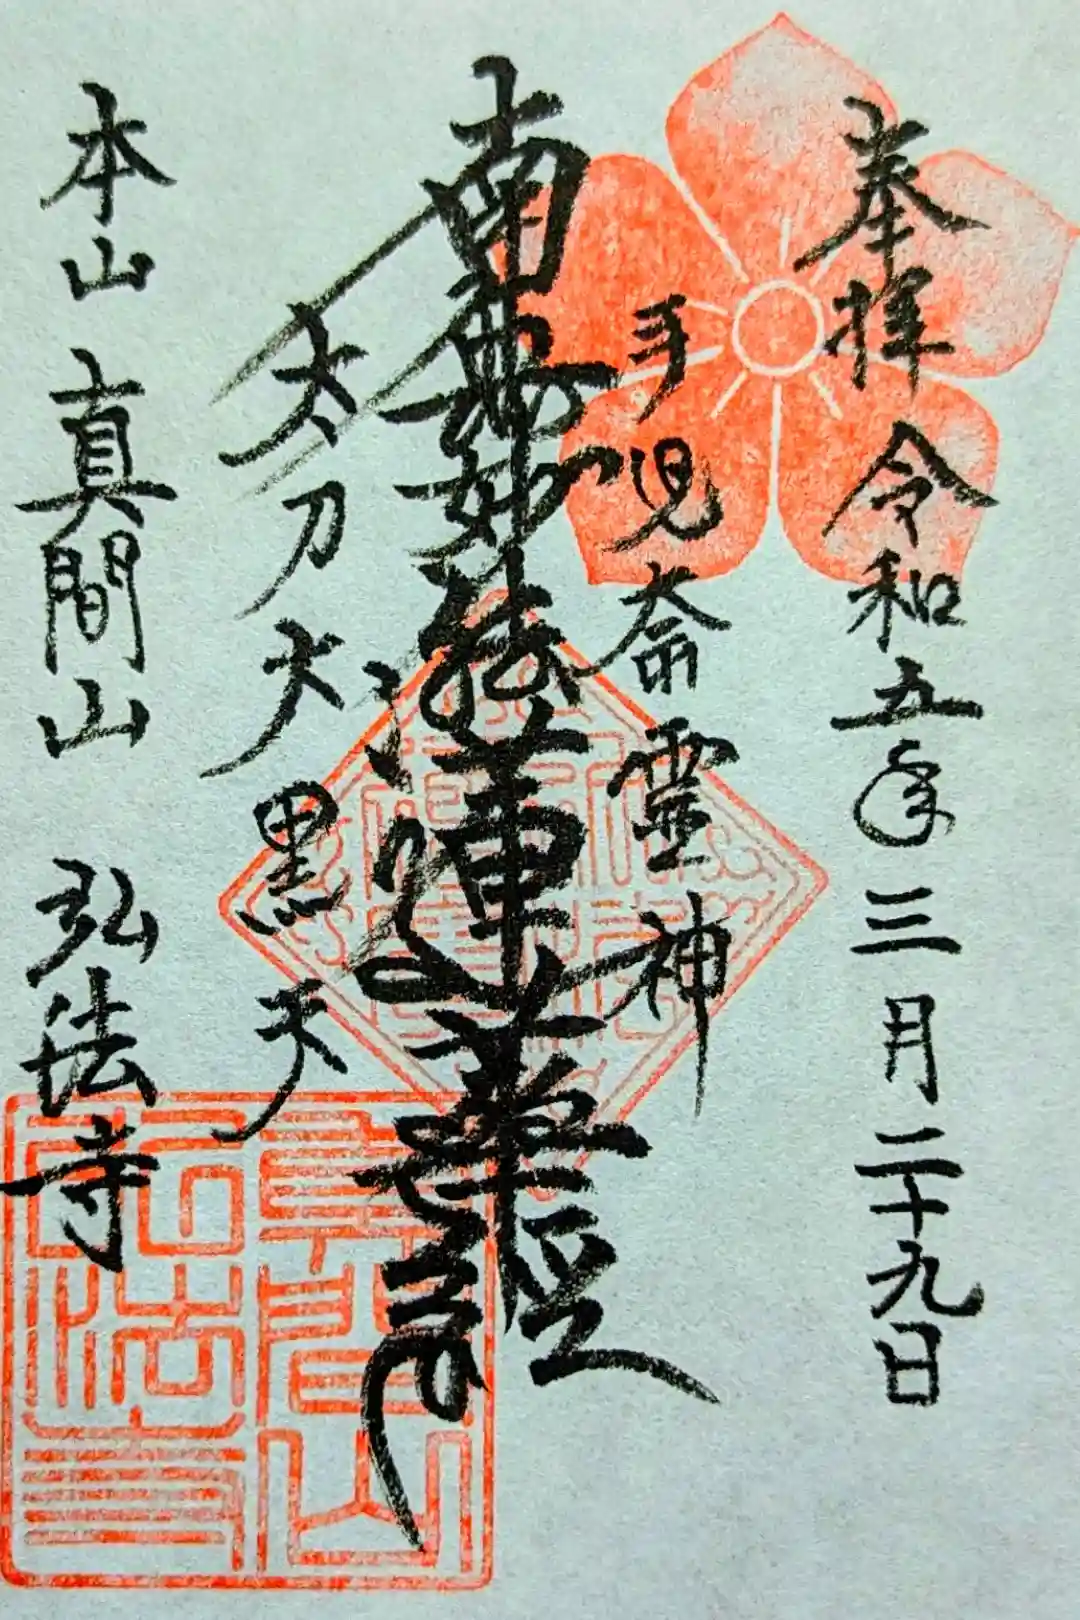 奉拝 令和五年三月二十九日
手児奈霊神
南無妙法蓮華経
太刀大黒天
本山 真間山 弘法寺